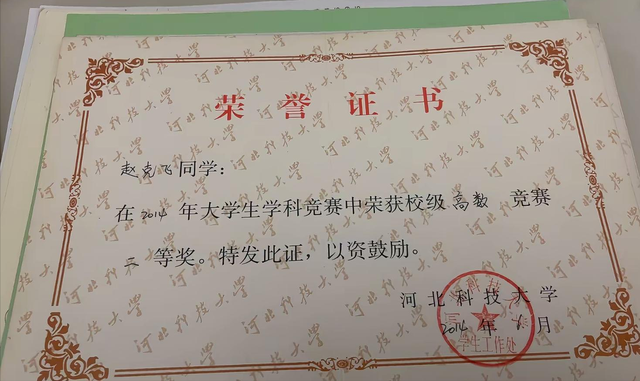 荣誉证书
赵克飞同学：
在2014年大学生学科竞赛中荣获校级高数 竞赛
三 等奖。特发此证，以资鼓励。
河北科技大学
2014年 月
学生工作处